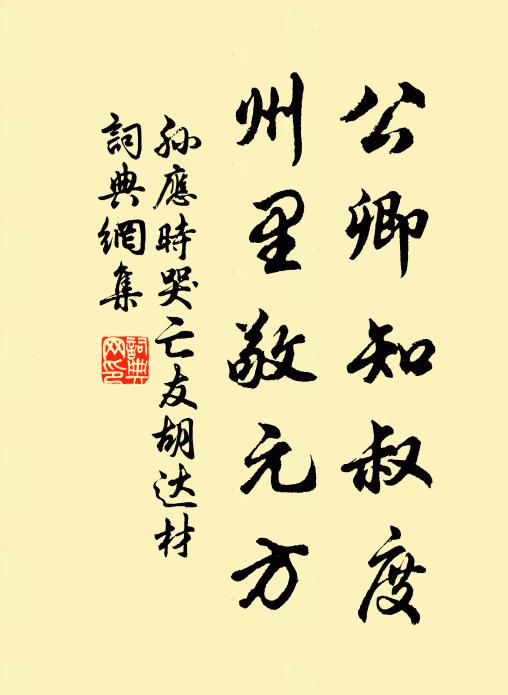 公卿知叔度
州里敬元方
孙應時哭亡友胡达材
詞典網集
詞典网印